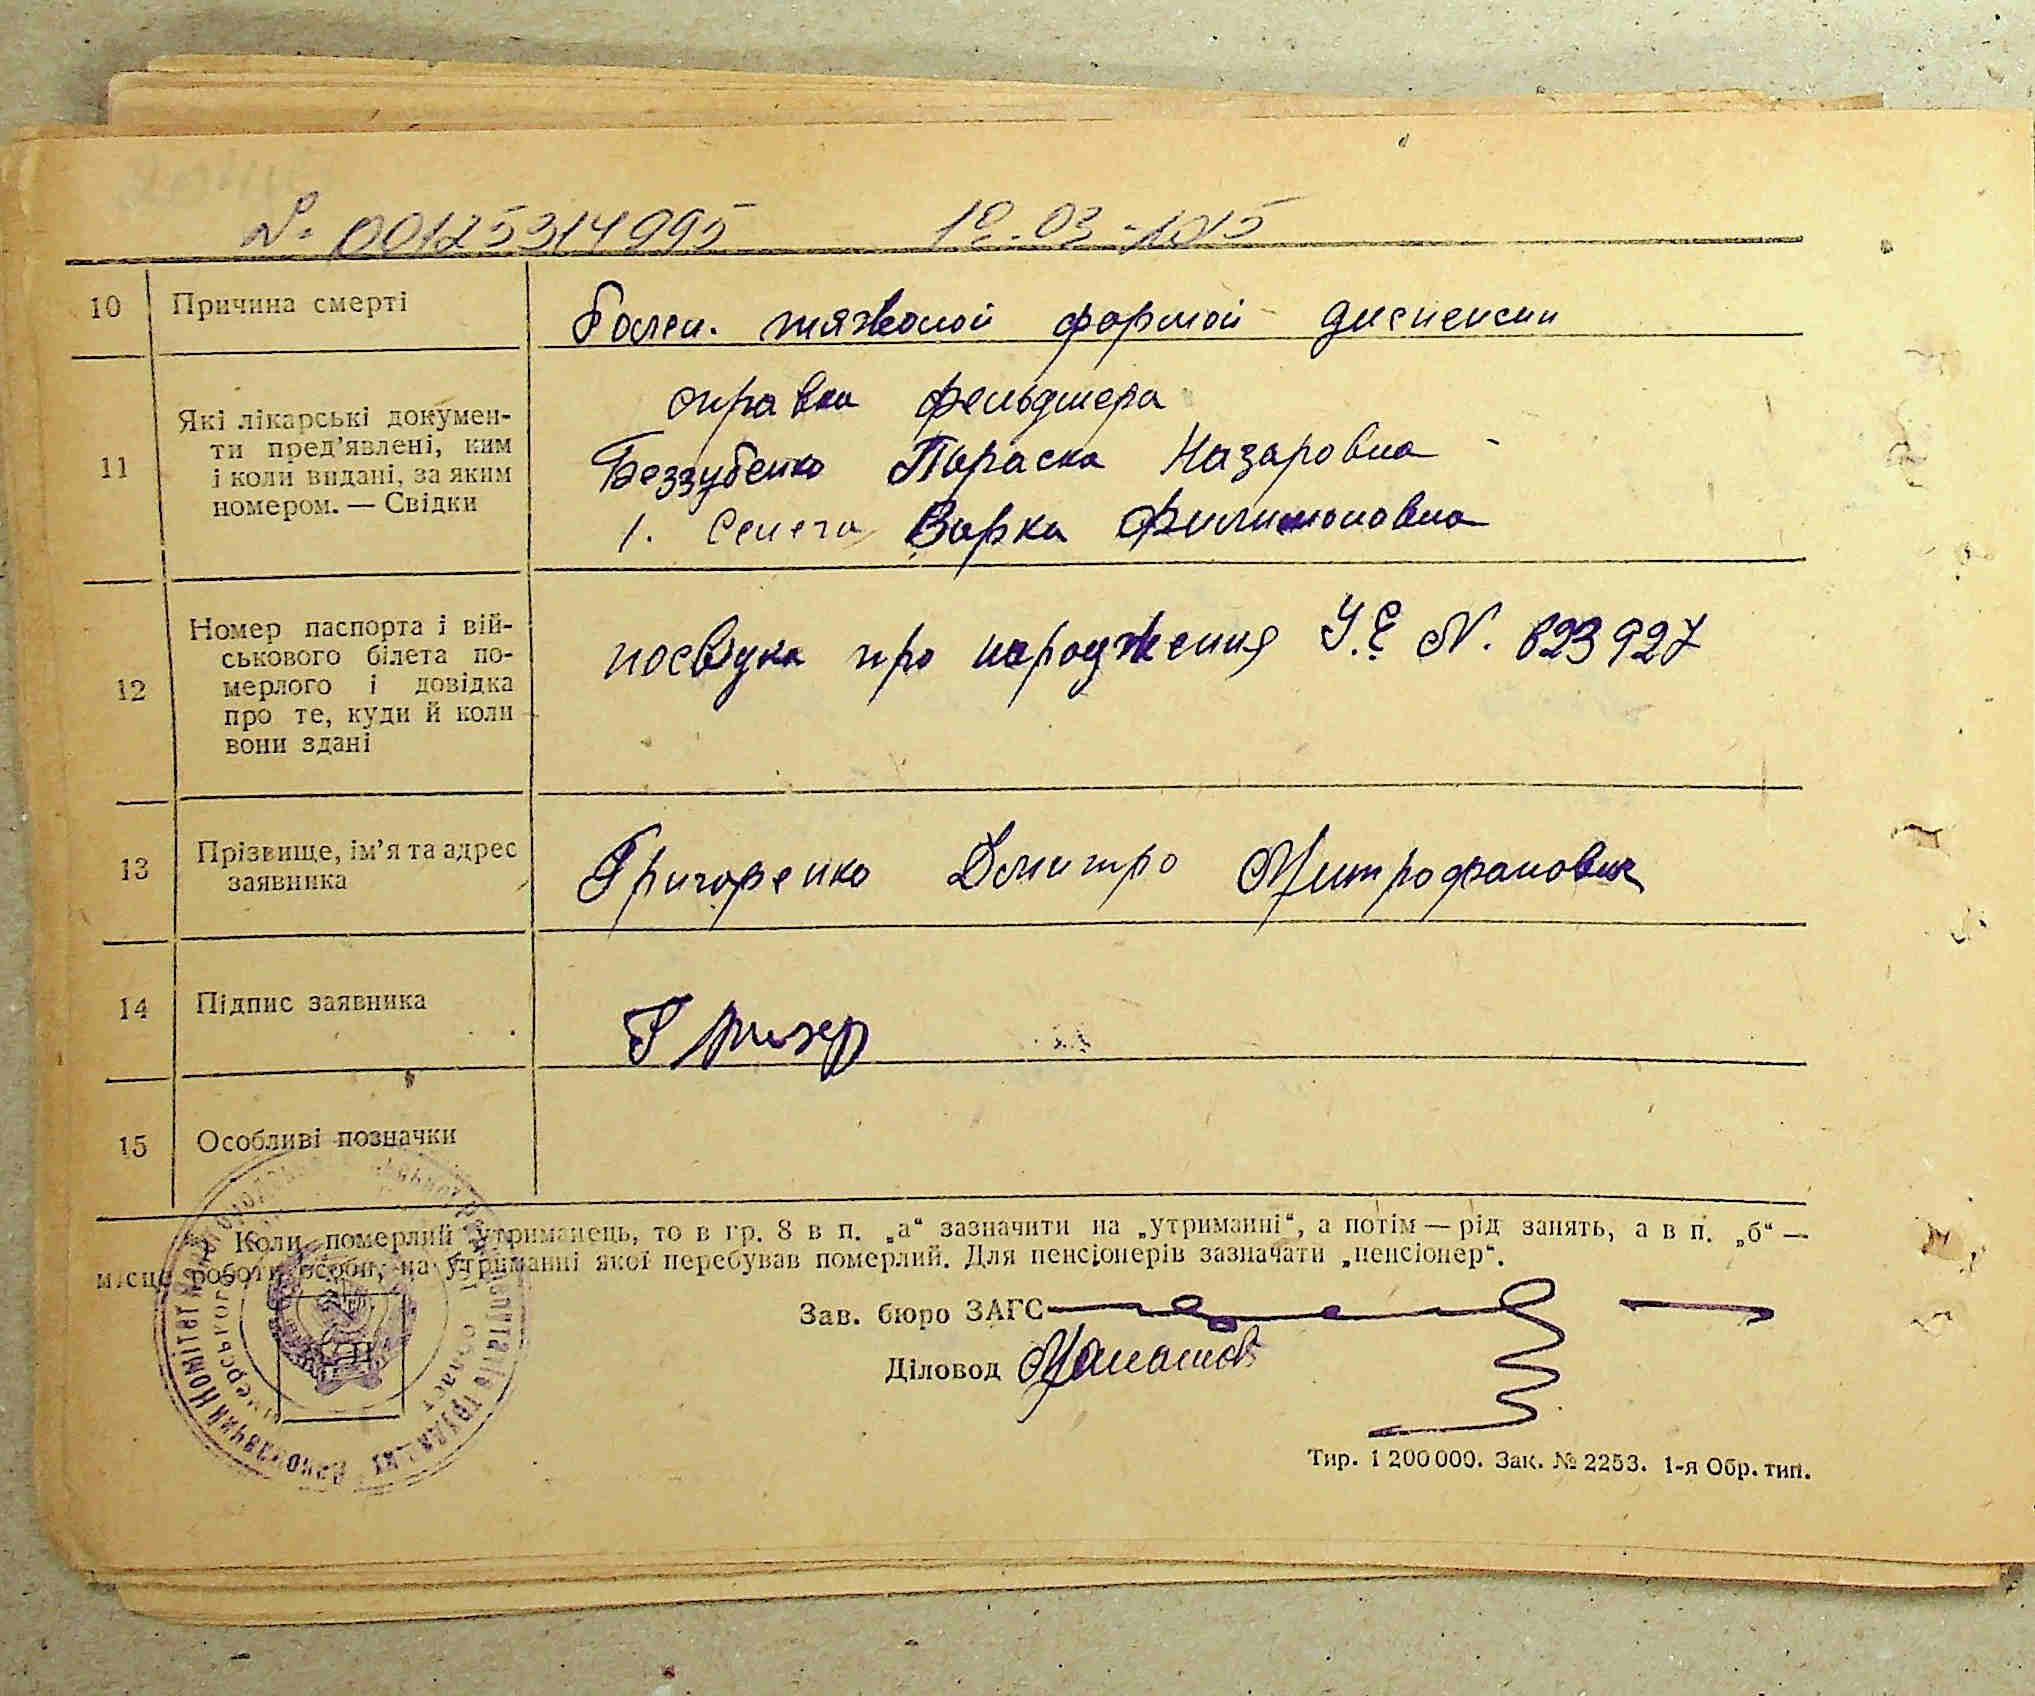 00125314995
10 Причина смерті
Болен. тяжолой формой диспепсии
11 Які лікарські докумен-
ти пред’явлені, ким
і коли видані, за яким
номером. — Свідки
справка фельдшера
Беззубенко Параска Назаровна
1. Сенега Варка Филимоновна
12 Номер паспорта і вій-
ськового білета по-
мерлого і довідка
про те, куди й коли
вони здані
посвідка про народження У.Е N. 623927
13 Прізвище, ім’я та адрес
заявника
Григоренко Дмитро Митрофанович
14 Підпис заявника
Григор
15 Особливі позначки
Коли померлий утриманець, то в гр. 8 в п. „а“ зазначити на „утриманні“, а потім — рід занять, а в п. „б“ —
місце роботи особи, на утриманні якої перебував померлий. Для пенсіонерів зазначати „пенсіонер“.
Зав. бюро ЗАГС
Діловод
Тир. 1 200 000. Зак. № 2253. 1-я Обр. тип.